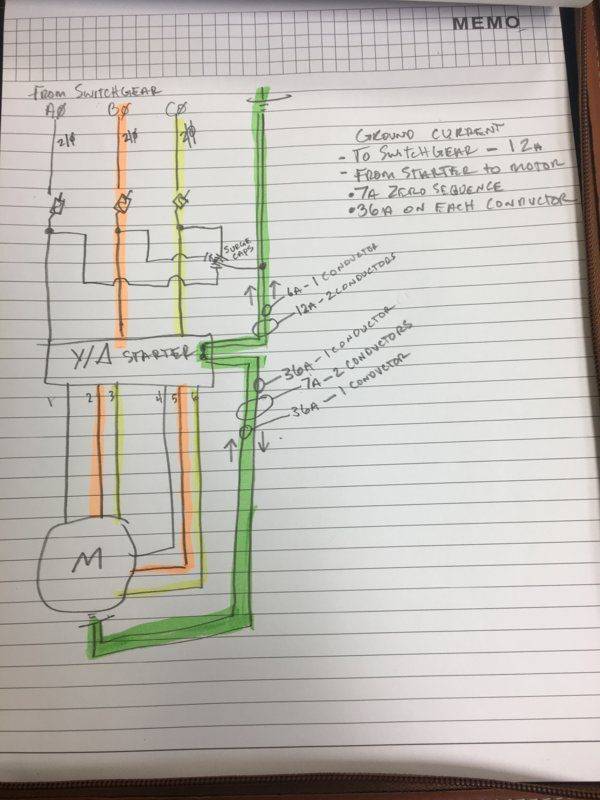 MEMO
FROM SWITCHGEAR
AØ BØ CØ
GROUND CURRENT
- TO SWITCHGEAR - 12A
- FROM STARTER TO MOTOR
• 7A ZERO SEQUENCE
• 36A ON EACH CONDUCTOR
SURGE
CAPS
6A - 1 CONDUCTOR
12A - 2 CONDUCTORS
Y/Δ STARTER
36A - 1 CONDUCTOR
7A - 2 CONDUCTORS
36A - 1 CONDUCTOR
1 2 3 4 5 6
M